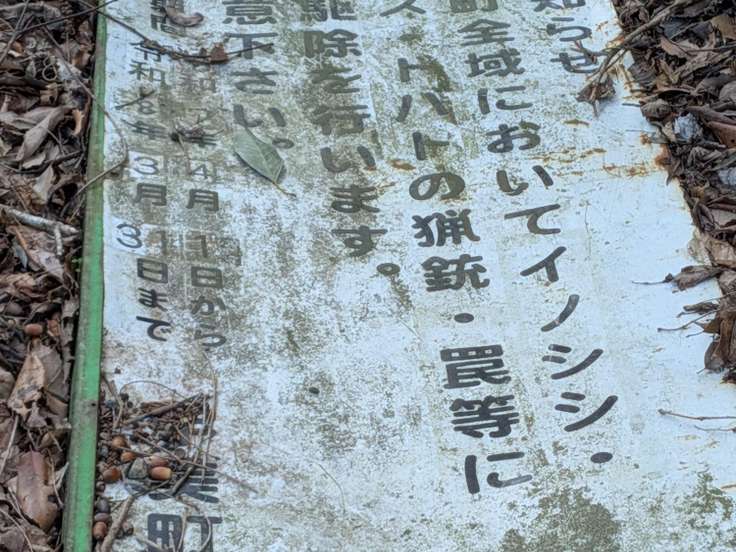 知らせ
町全域においてイノシシ・
ス・ドバトの猟銃・罠等に
駆除を行います。
意下さい。
令和7年4月1日から
令和8年3月31日まで
町